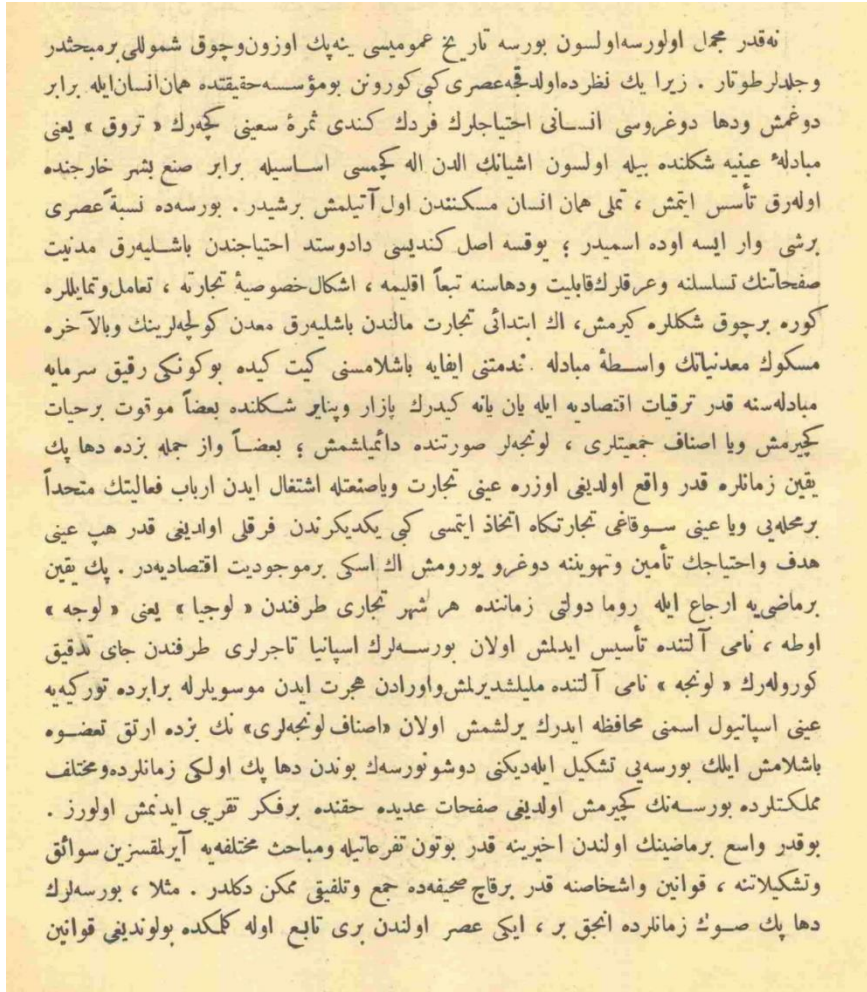 نه‌قدر مجمل اولورسه‌اولسون بورسه تاريخ عموميسى ينه‌پك اوزون‌وچوق شموللى برمبحثدر
وجلدلرطوتار . زيرا يك نظرده‌اولدقجه‌عصرى كبى كورونن بومؤسسه‌حقيقتده همان‌انسان‌ايله برابر
دوغمش ودها دوغروسى انسانى احتياجلرك فردك كندى ثمرۀ سعينى كچه‌رك « تروق » يعنى
مبادلۀ عينيه شكلنده بيله اولسون اشيانك الدن اله كچمسى اساسيله برابر صنع بشر خارجنده
اوله‌رق تأسس ايتمش ، تملى همان انسان مسكنندن اول آتيلمش برشيدر . بورسه‌ده نسبةً عصرى
برشى وار ايسه اوده اسميدر ؛ يوقسه اصل كنديسى دادوستد احتياجندن باشليه‌رق مدنيت
صفحاتنك تسلسلنه وعرقلرك‌قابليت ودهاسنه تبعاً اقليمه ، اشكال‌خصوصيۀ تجارته ، تعامل‌وتمايللره
كوره برچوق شكللره كيرمش، اك ابتدائى تجارت مالندن باشليه‌رق معدن كولچه‌لرينك وبالآخره
مسكوك معدنياتك واسطۀ مبادله خدمتنى ايفايه باشلامسنى كيت كيده بوكونكى رقيق سرمايه
مبادله‌سنه قدر ترقيات اقتصاديه ايله يان يانه كيدرك پازار وپناير شكلنده بعضاً موقوت برحيات
كچيرمش ويا اصناف جمعيتلرى ، لونجه‌لر صورتنده دائميلشمش ؛ بعضاً واز جمله بزده دها پك
يقين زمانلره قدر واقع اولديغى اوزره عينى تجارت وياصنعتله اشتغال ايدن ارباب فعاليتك متحداً
برمحله‌يى ويا عينى سوقاغى تجارتكاه اتخاذ ايتمسى كبى يكديكرندن فرقلى اولديغى قدر هپ عينى
هدف واحتياجك تأمين وتهويننه دوغرو يورومش اك اسكى برموجوديت اقتصاديه‌در . پك يقين
برماضى‌يه ارجاع ايله روما دولتى زماننده هر شهر تجارى طرفندن « لوجيا » يعنى « لوجه »
اوطه ، نامى آلتنده تأسيس ايدلمش اولان بورسه‌لرك اسپانيا تاجرلرى طرفندن جاى تدقيق
كوروله‌رك « لونجه » نامى آلتنده مليلشديرلمش‌واورادن هجرت ايدن موسويلرله برابرده توركيه‌يه
عينى اسپانيول اسمنى محافظه ايدرك يرلشمش اولان «اصناف لونجه‌لرى» نك بزده ارتق تعضوه
باشلامش ايلك بورسه‌يى تشكيل ايله‌ديكنى دوشونورسه‌ك بوندن دها پك اولكى زمانلرده‌ومختلف
مملكتلرده بورسه‌نك كچيرمش اولديغى صفحات عديده حقنده برفكر تقريبى ايدنمش اولورز .
بوقدر واسع برماضينك اولندن اخيرينه قدر بوتون تفرعاتيله ومباحث مختلفه‌يه آيرلمقسزين سوائق
وتشكيلاتنه ، قوانين واشخاصنه قدر برقاچ صحيفه‌ده جمع وتلفيقى ممكن دكلدر . مثلا ، بورسه‌لرك
دها پك صوك زمانلرده انجق بر ، ايكى عصر اولندن برى تابع اوله كلمكده بولونديغى قوانين